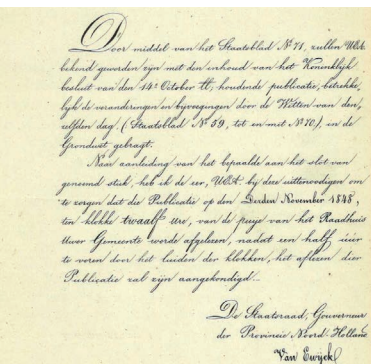 Door middel van het Staatsblad No 71, zullen UEA.
bekend geworden zijn met den inhoud van het Koninklijk
besluit van den 14e October ll; houdende publicatie, betrekke,
lijk de veranderingen en bijvoegingen door de Wetten van den,
zelfden dag. (Staatsblad No 59, tot en met No 70,) in de
Grondwet gebragt.
Naar aanleiding van het bepaalde aan het slot van
genoemd stuk, heb ik de eer, UEA. bij deze uittenoodigen om
te zorgen dat die Publicatie op den Derden November 1848,
ten klokke twaalf ure, van de puije van het Raadhuis
Uwer Gemeente worde afgelezen, nadat een half uur
te voren door het luiden der klokken, het aflezen dier
Publicatie zal zijn aangekondigd.
De Staatsraad, Gouverneur
der Provincie Noord-Holland
Van Ewijck